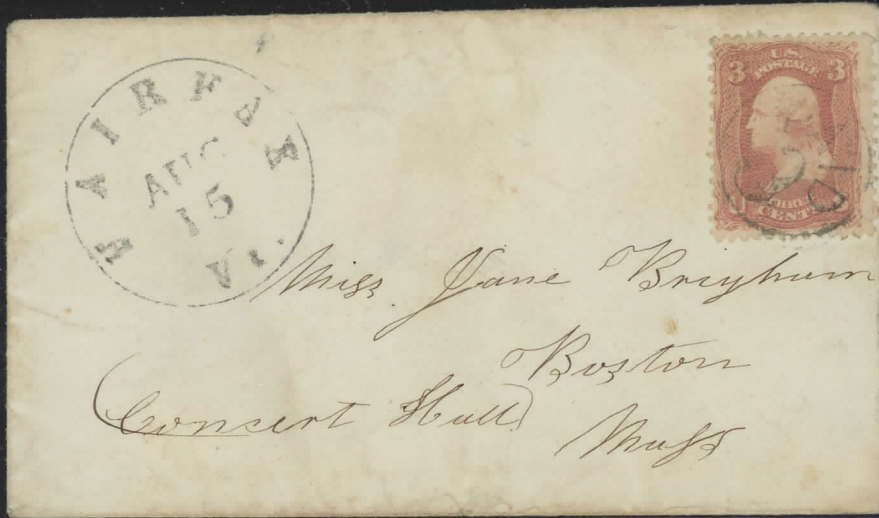 FAIRFAX
AUG
15
Vt.
U.S.
POSTAGE
3 3
THREE
CENTS
PAID
Miss Jane Brigham
Boston
Concert Hall
Mass